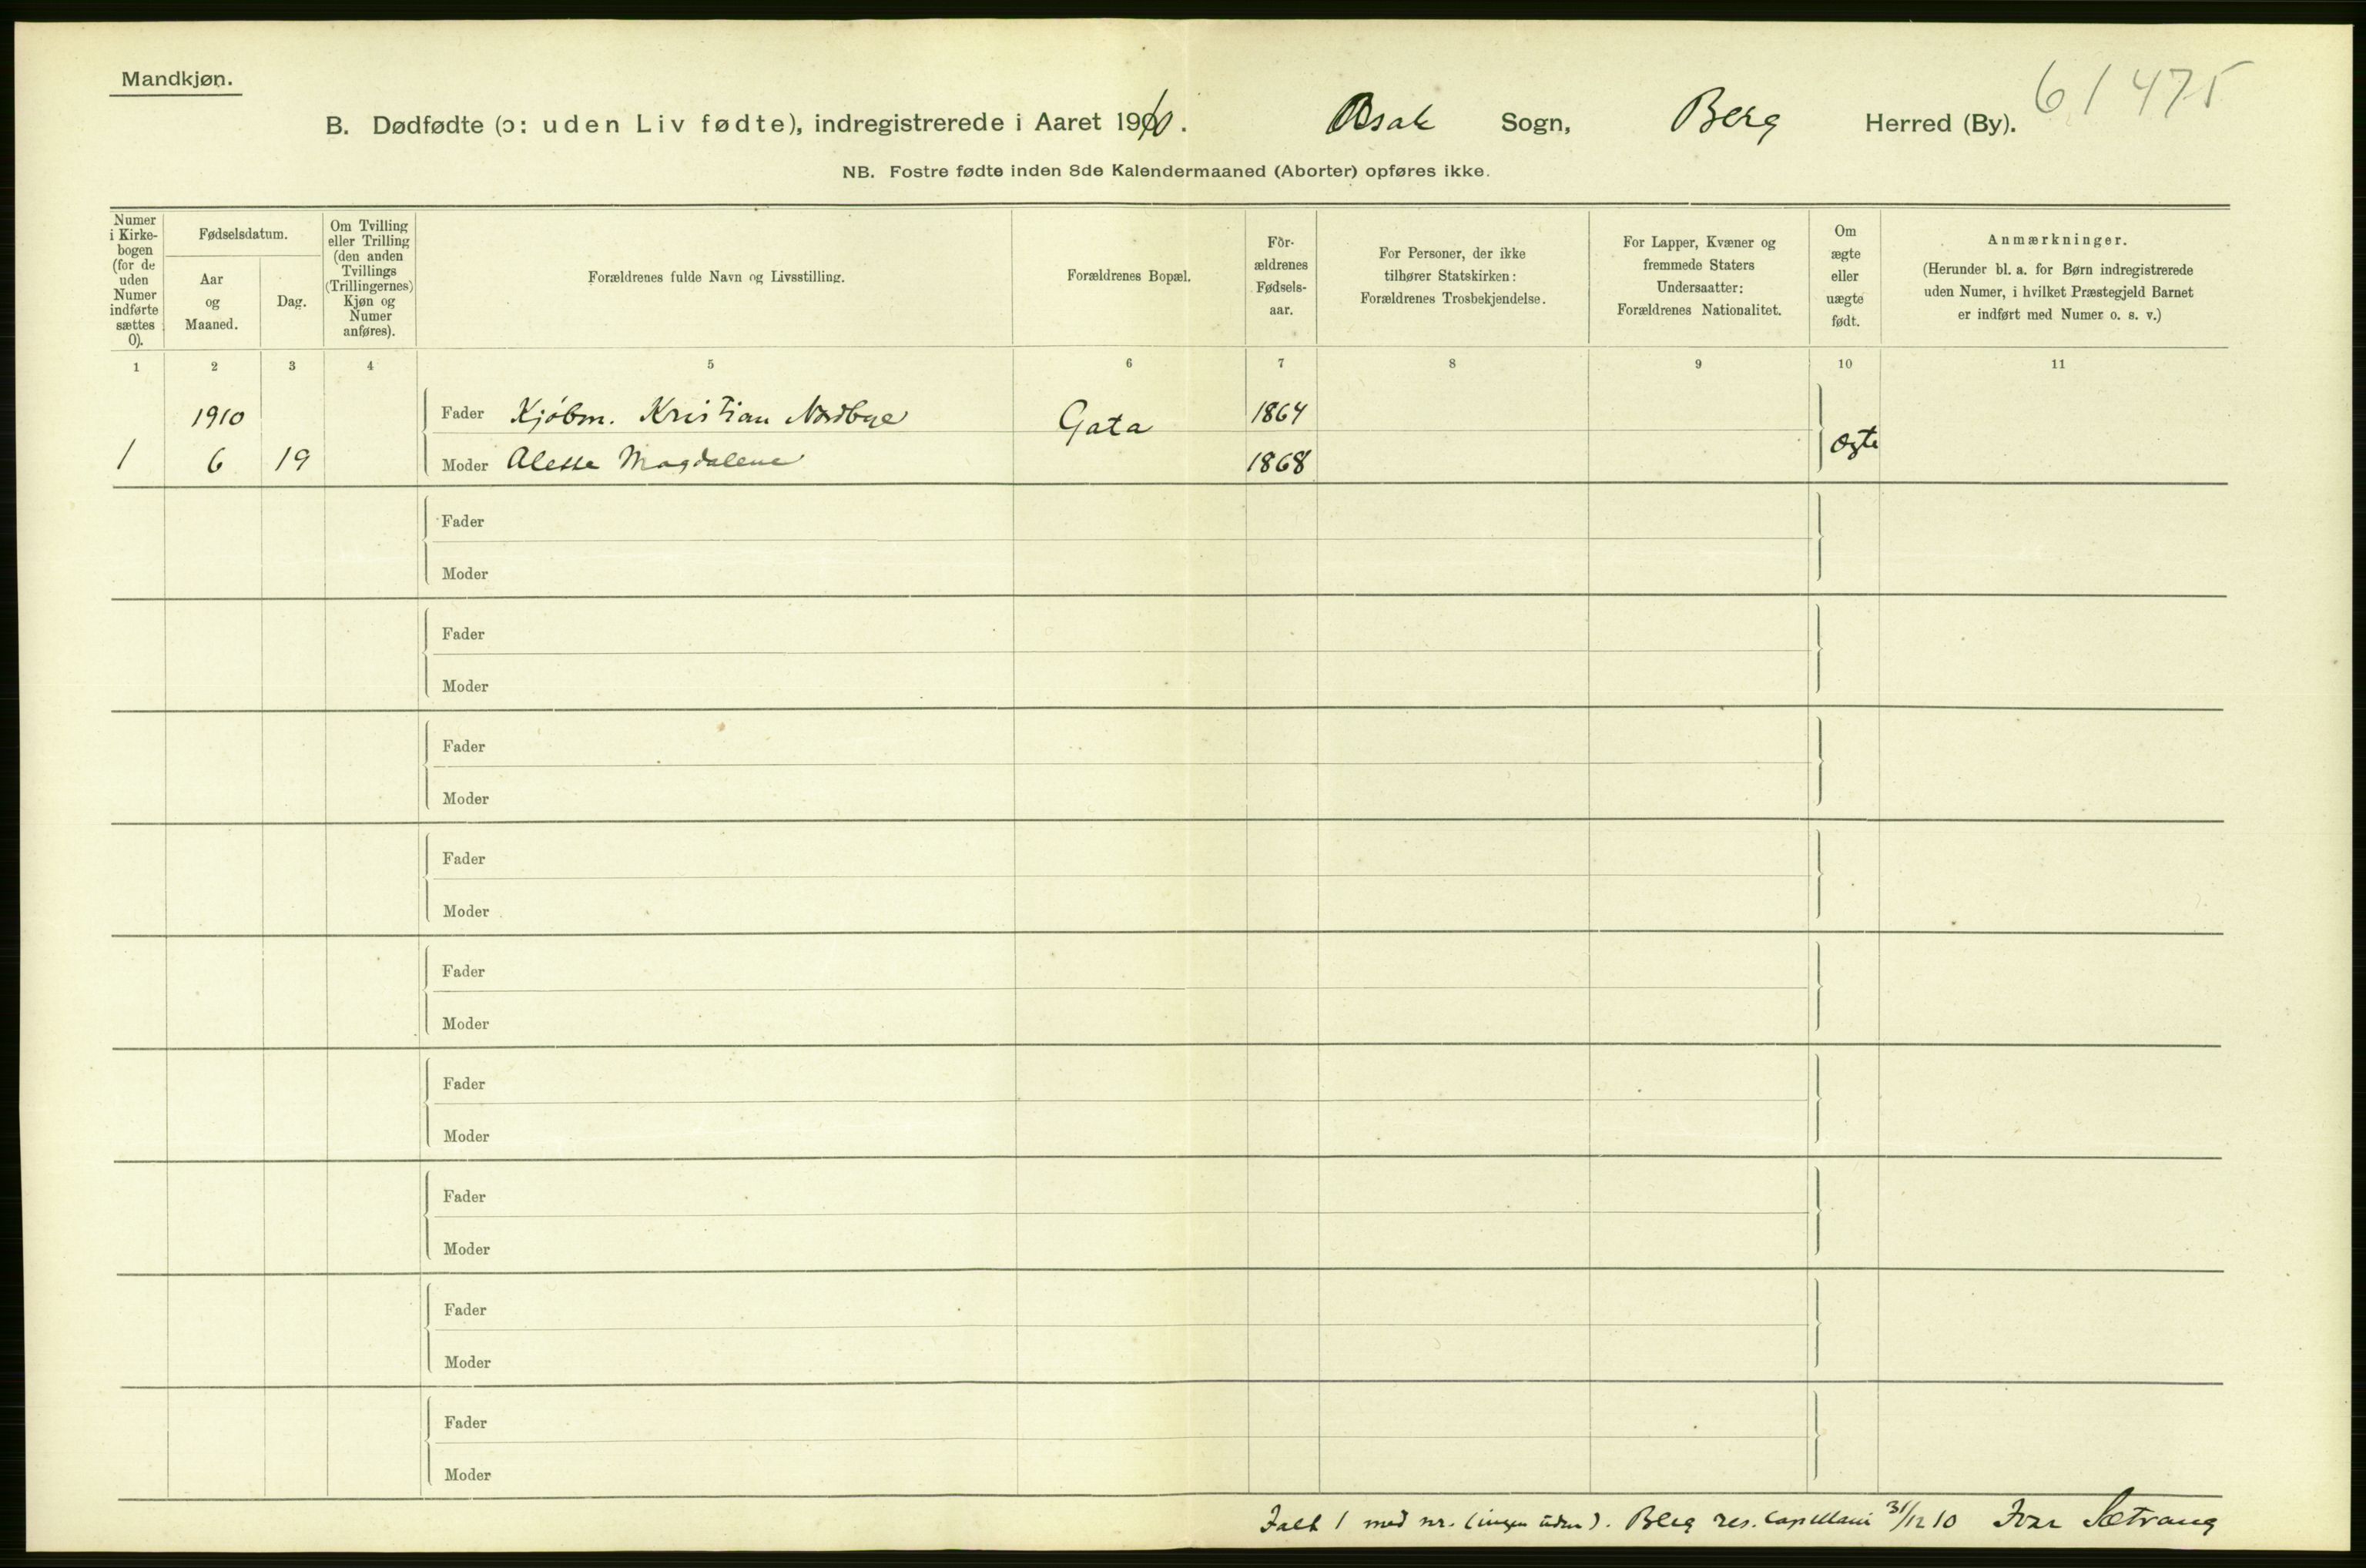 Mandkjøn.
61475
B. Dødfødte (ɔ: uden Liv fødte), indregistrerede i Aaret 1910. Asak Sogn, Berg Herred (By).
NB. Fostre fødte inden 8de Kalendermaaned (Aborter) opføres ikke.
Numer
i Kirke-
bogen
(for de
uden
Numer
indførte
sættes
0).
Fødselsdatum.
Aar
og
Maaned.
Dag.
Om Tvilling
eller Trilling
(den anden
Tvillings
(Trillingernes)
Kjøn og
Numer
anføres).
Forældrenes fulde Navn og Livsstilling.
Forældrenes Bopæl.
For-
ældrenes
Fødsels-
aar.
For Personer, der ikke
tilhører Statskirken:
Forældrenes Trosbekjendelse.
For Lapper, Kvæner og
fremmede Staters
Undersaatter:
Forældrenes Nationalitet.
Om
ægte
eller
uægte
født.
Anmærkninger.
(Herunder bl. a. for Børn indregistrerede
uden Numer, i hvilket Præstegjeld Barnet
er indført med Numer o. s. v.)
1 2 3 4 5 6 7 8 9 10 11
1910 Fader Kjöbm. Kristian Nordbye Gata 1864
1 6 19 Moder Magdalene 1868 ægte
Fader
Moder
Fader
Moder
Fader
Moder
Fader
Moder
Fader
Moder
Fader
Moder
Fader
Moder
Fader
Moder
Fader
Moder
Ialt 1 med nr. (ingen uden). Berg res. capellani 31/12 10 Ivar Sætrang